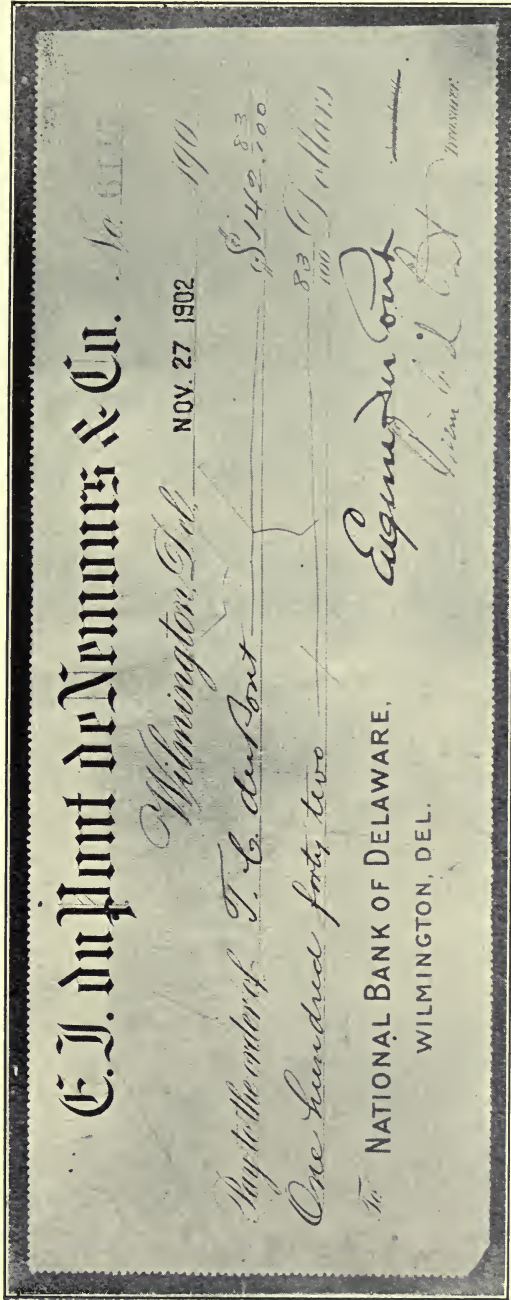 E. I. du Pont de Nemours & Co. No.
Wilmington, Del. NOV. 27 1902 190
Pay to the order of T. C. duPont $142.83/100
One hundred forty two 83/100 Dollars
To NATIONAL BANK OF DELAWARE,
WILMINGTON, DEL.
Eugene du Pont
Treasurer.